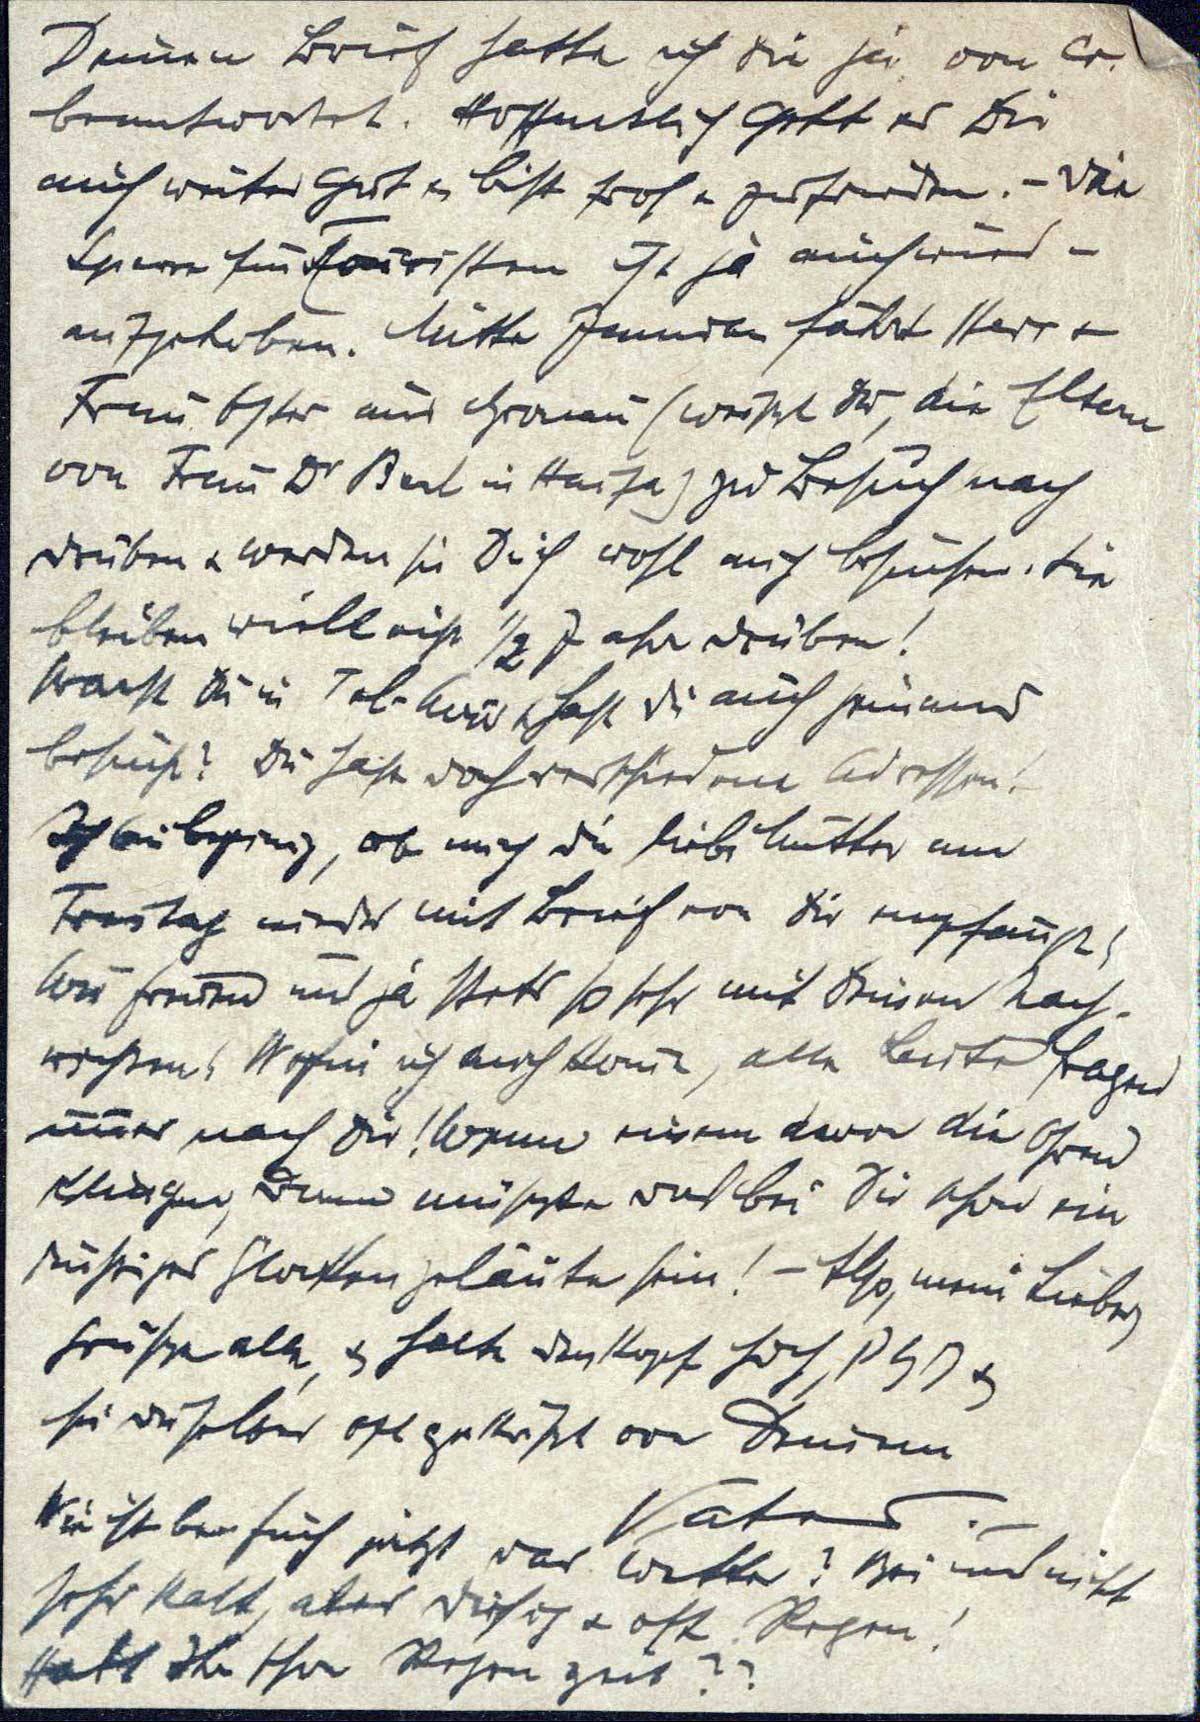 Deinen Brief hatte ich Dir ja von Cr.
beantwortet. Hoffentlich geht es Dir
auch weiter gut & bist froh & zufrieden. – Die
Sperre für Touristen ist ja auch wied-
aufgehoben. Mitte Januar fährt Herr &
Frau Oster aus Gronau (weißt Du, die Eltern
von Frau Dr in Haifa) zu Besuch nach
drüben & werden sie Dich wohl auch besuchen. Sie
bleiben vielleicht 1/2 Jahr drüben!
Warst Du in Tel-Aviv & hast Du auch jemand
besucht? Du hast doch verschiedene Adressen!
Ich bin begierig, ob mich die liebe Mutter am
Freitag wieder mit Brief von Dir empfängt!
Wir freuen uns ja stets so sehr mit Deinen Nach-
richten! Wohin ich auch komme, alle Leute fragen
immer nach Dir! Wenn einem davon die Ohren
klingen, dann müsste das bei Dir schon ein
Glockengeläute sein! – Also, mein Lieber,
grüsse alle, & halte den Kopf hoch, &
sei Du selber oft geküßt von Deinem
Vater. –
Wie ist bei Euch jetzt das Wetter? Bei uns nicht
sehr kalt, aber diesig & oft Regen!
Habt Ihr schon Regenzeit??